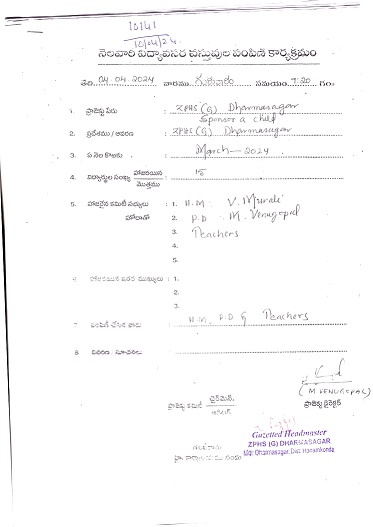 10/41
10/04/24
నెలవారీ విద్యావసర వస్తువుల పంపిణీ కార్యక్రమం
తేది: 04.04.2024 వారము గురువారం సమయం 9:20 గం
1. ప్రాజెక్టు పేరు : ZPHS (G) Dharmasagar
Sponsor a child
2. ప్రదేశము / ఆవరణ : ZPHS (G) Dharmasagar
3. ఏ నెల కొరకు : March - 2024
4. విద్యార్థుల సంఖ్య హాజరయిన / మొత్తము : 15
5. హాజరైన కమిటీ సభ్యులు : 1. H.M V. Murali
హోదాతో 2. P.D M. Venugopal
3. Teachers
4.
5.
6. హాజరయిన ఇతర ముఖ్యులు : 1.
2.
3.
7. పంపిణీ చేసిన వారు : H.M, P.D & Teachers
8. వివరణ / సూచనలు :
(M VENUGOPAL)
ప్రాజెక్టు కమిటీ చైర్మన్ ప్రాజెక్టు డైరెక్టర్
Gazetted Headmaster
ZPHS (G) DHARMASAGAR
Mdl: Dharmasagar, Dist: Hanamkonda